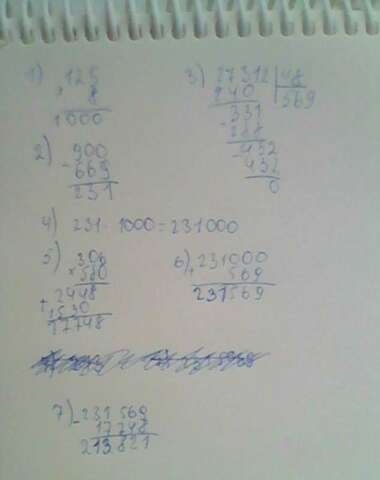 1) 125
× 8
1000
2) 900
- 669
231
3) 27312 | 48
240 569
331
- 288
- 432
432
0
4) 231 · 1000 = 231000
5) 306
× 580
+ 2448
1530
17748
6) 231000
+ 569
231569
7) - 231569
17748
213821